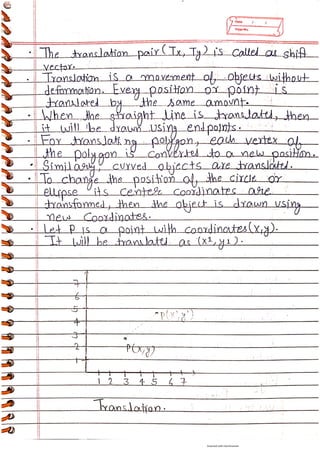 Date / /
Page No.
• The translation pair (Tx, Ty) is called as shift
vector.
• Translation is a movement of objects without
deformation. Every position or point is
translated by the same amount.
• When the straight line is translated, then
it will be drawn using endpoints.
• For translating polygon, each vertex of
the polygon is converted to a new position.
• Similarly, curved objects are translated.
• To change the position of the circle or
ellipse its center coordinates are
transformed, then the object is drawn using
new coordinates.
• Let P is a point with coordinates (x,y).
It will be translated as (x¹,y¹).
7
6
5
P(x',y')
4
3
P(x,y)
2
1
1 2 3 4 5 6 7
Translation.